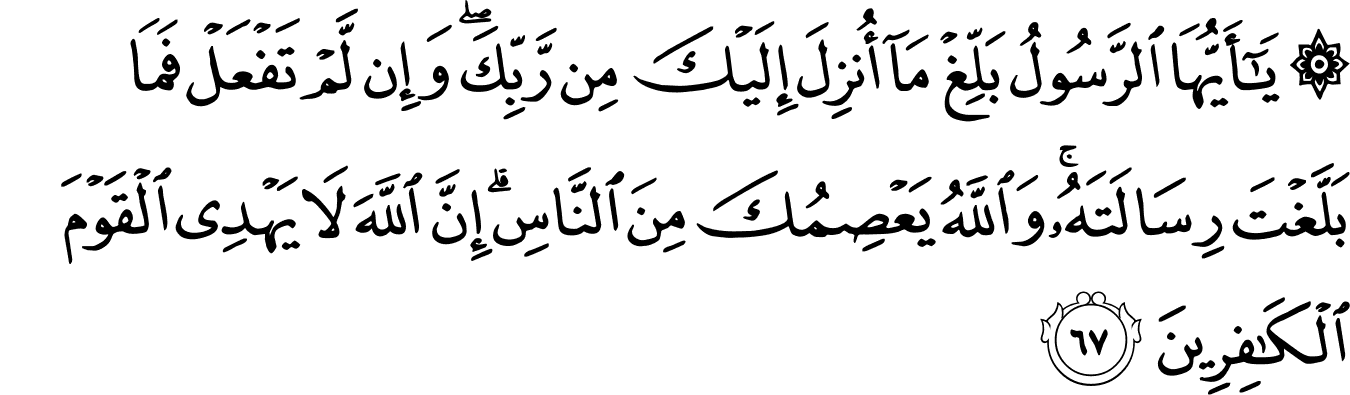 ۞ يَـٰٓأَيُّهَا ٱلرَّسُولُ بَلِّغۡ مَآ أُنزِلَ إِلَيۡكَ مِن رَّبِّكَۖ وَإِن لَّمۡ تَفۡعَلۡ فَمَا
بَلَّغۡتَ رِسَالَتَهُۥۚ وَٱللَّهُ يَعۡصِمُكَ مِنَ ٱلنَّاسِۗ إِنَّ ٱللَّهَ لَا يَهۡدِى ٱلۡقَوۡمَ
ٱلۡكَـٰفِرِينَ ٦٧